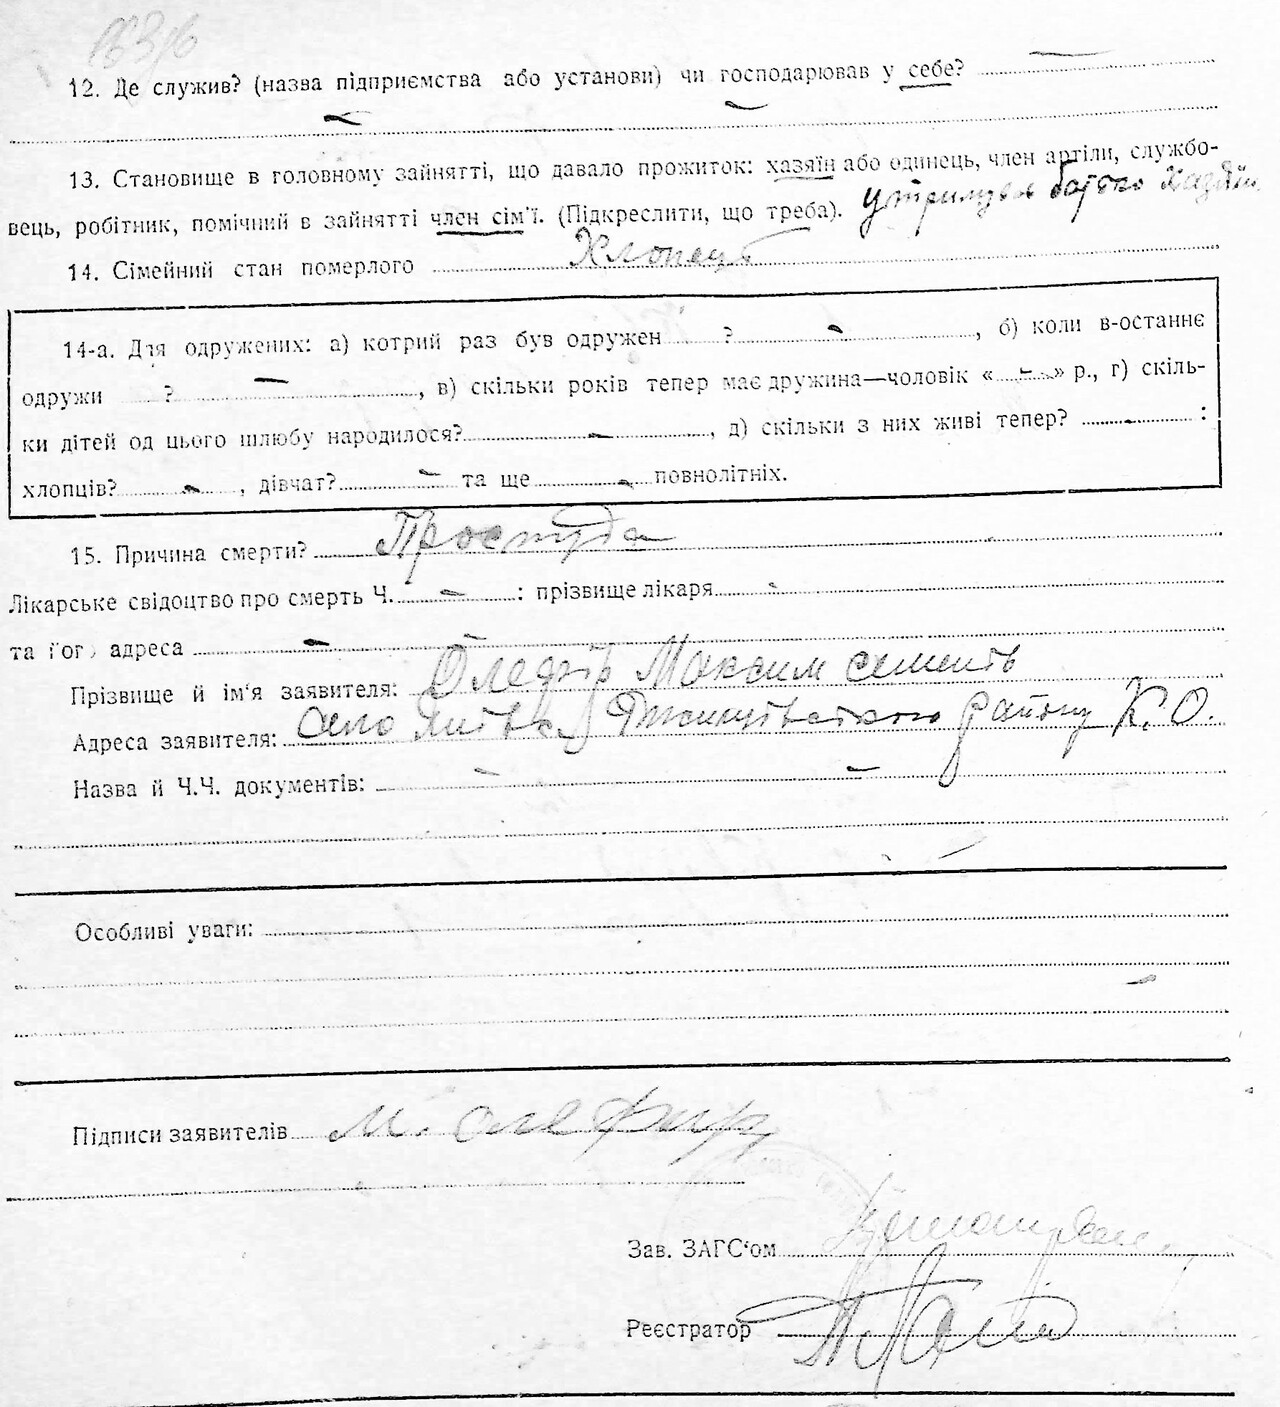 12. Де служив? (назва підприємства або установи) чи господарював у себе? —
— —
13. Становище в головному зайнятті, що давало прожиток: хазяїн або одинець, член артіли, службо-
вець, робітник, помічний в зайнятті член сім'ї. (Підкреслити, що треба). утримував батько хазяїн
14. Сімейний стан померлого Хлопець
14-а. Для одружених: а) котрий раз був одружен ? —, б) коли в-останнє
одружи ? —, в) скільки років тепер має дружина—чоловік «—» р., г) скіль-
ки дітей од цього шлюбу народилося? —, д) скільки з них живі тепер? — :
хлопців? —, дівчат? — та ще — повнолітніх.
15. Причина смерти? Простуда
Лікарське свідоцтво про смерть Ч. — : прізвище лікаря -
та його адреса —
Прізвище й ім'я заявителя: Олефір Максим
Адреса заявителя: село району К. О.
Назва й Ч.Ч. документів: — —
Особливі уваги:
—
Підписи заявителів М. Олефир
Зав. ЗАГС'ом
Реєстратор